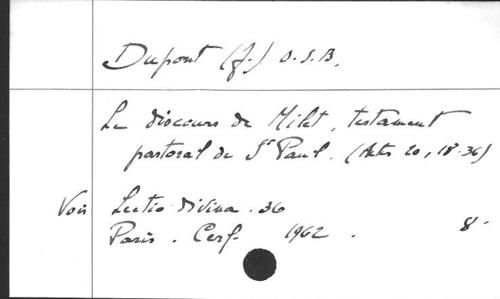 Dupont (J.) O.S.B.
Le discours de Milet, testament
pastoral de St Paul. (Actes 20, 18-36)
Voir Lectio divina. 36
Paris. Cerf. 1962. 8°